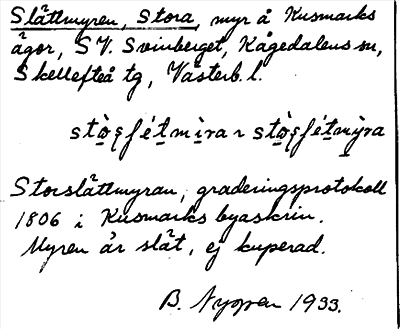 Slåttmyren, Stora, myr å Kusmarks
ägor, S V. Svinberget, Kågedalens sn,
Skellefteå tg, Västerb. l.
Storslåttmyran, graderingsprotokoll
1806 i Kusmarks byaskrin.
Myren är slät, ej kuperad.
B. Nyman 1933.